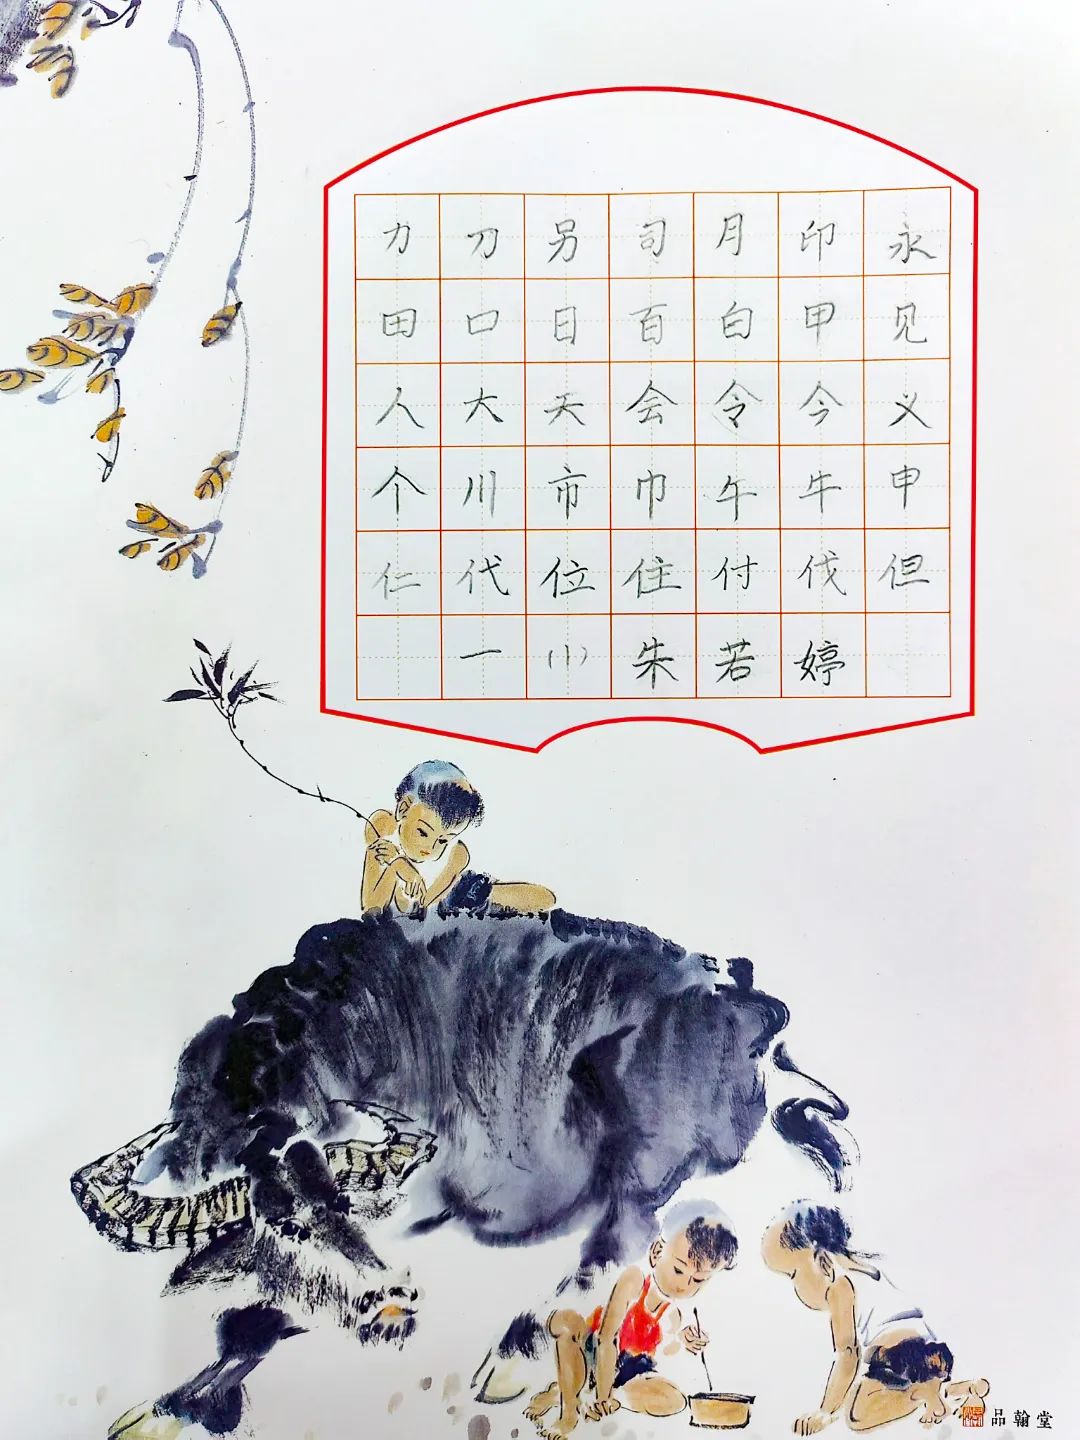 力刀另司月印永
田口日百白甲见
人大天会令今义
个川市巾午牛申
仁代位住付伐但
一(1)朱若婷
品翰堂